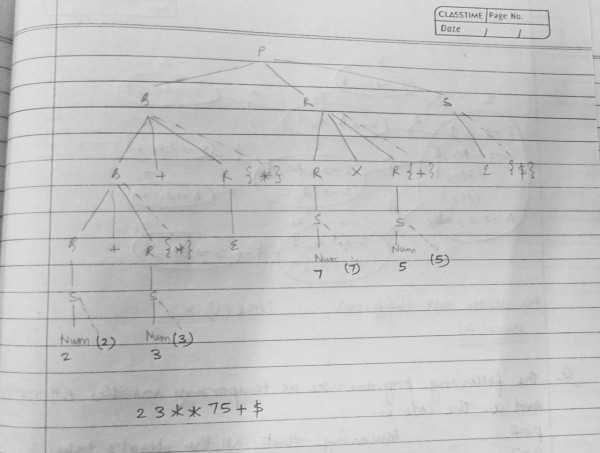 CLASSTIME Page No.
Date / /
P
B R S
B + R {*} R X R {+} Σ {$}
B + R {*} Σ S S
Num (7) Num (5)
7 5
S S
Num (2) Num (3)
2 3
2 3 * * 7 5 + $